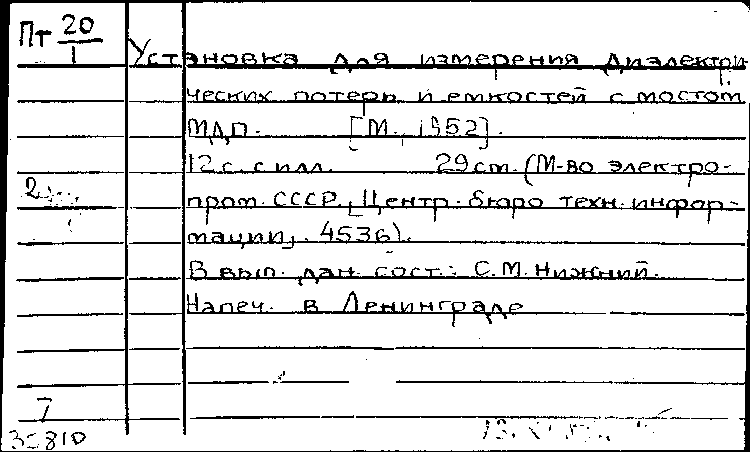 Пт 20/1
Установка для измерения диэлектри-
ческих потерь и емкостей с мостом
МДП. [М., 1952].
12 с. с илл. 29 см. (М-во электро-
пром. СССР. Центр. бюро техн. инфор-
мации, 4536).
В вып. дан. сост.: С.М. Нижний.
Напеч. в Ленинграде
2
7